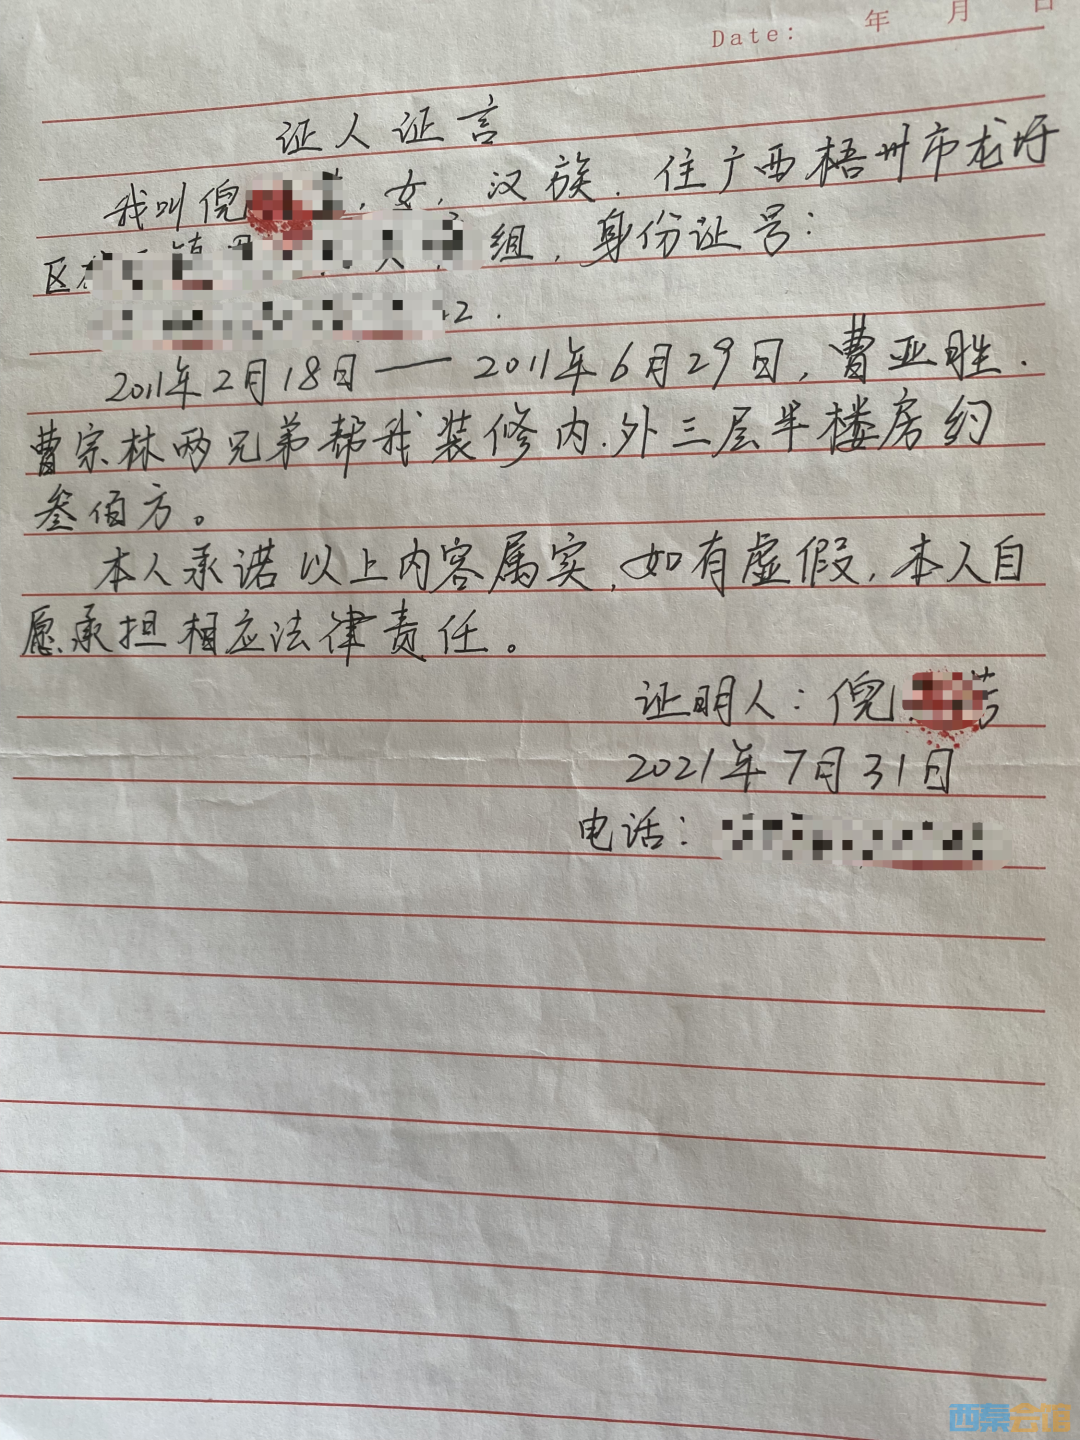 Date: 年 月 日
证人证言
我叫倪 ,女,汉族.住广西梧州市龙圩
区 组,身份证号:
2.
2011年2月18日——2011年6月29日,曹亚胜.
曹宗林两兄弟帮我装修内.外三层半楼房约
叁佰方。
本人承诺以上内容属实,如有虚假,本人自
愿承担相应法律责任。
证明人:倪
2021年7月31日
电话:
西秦会馆